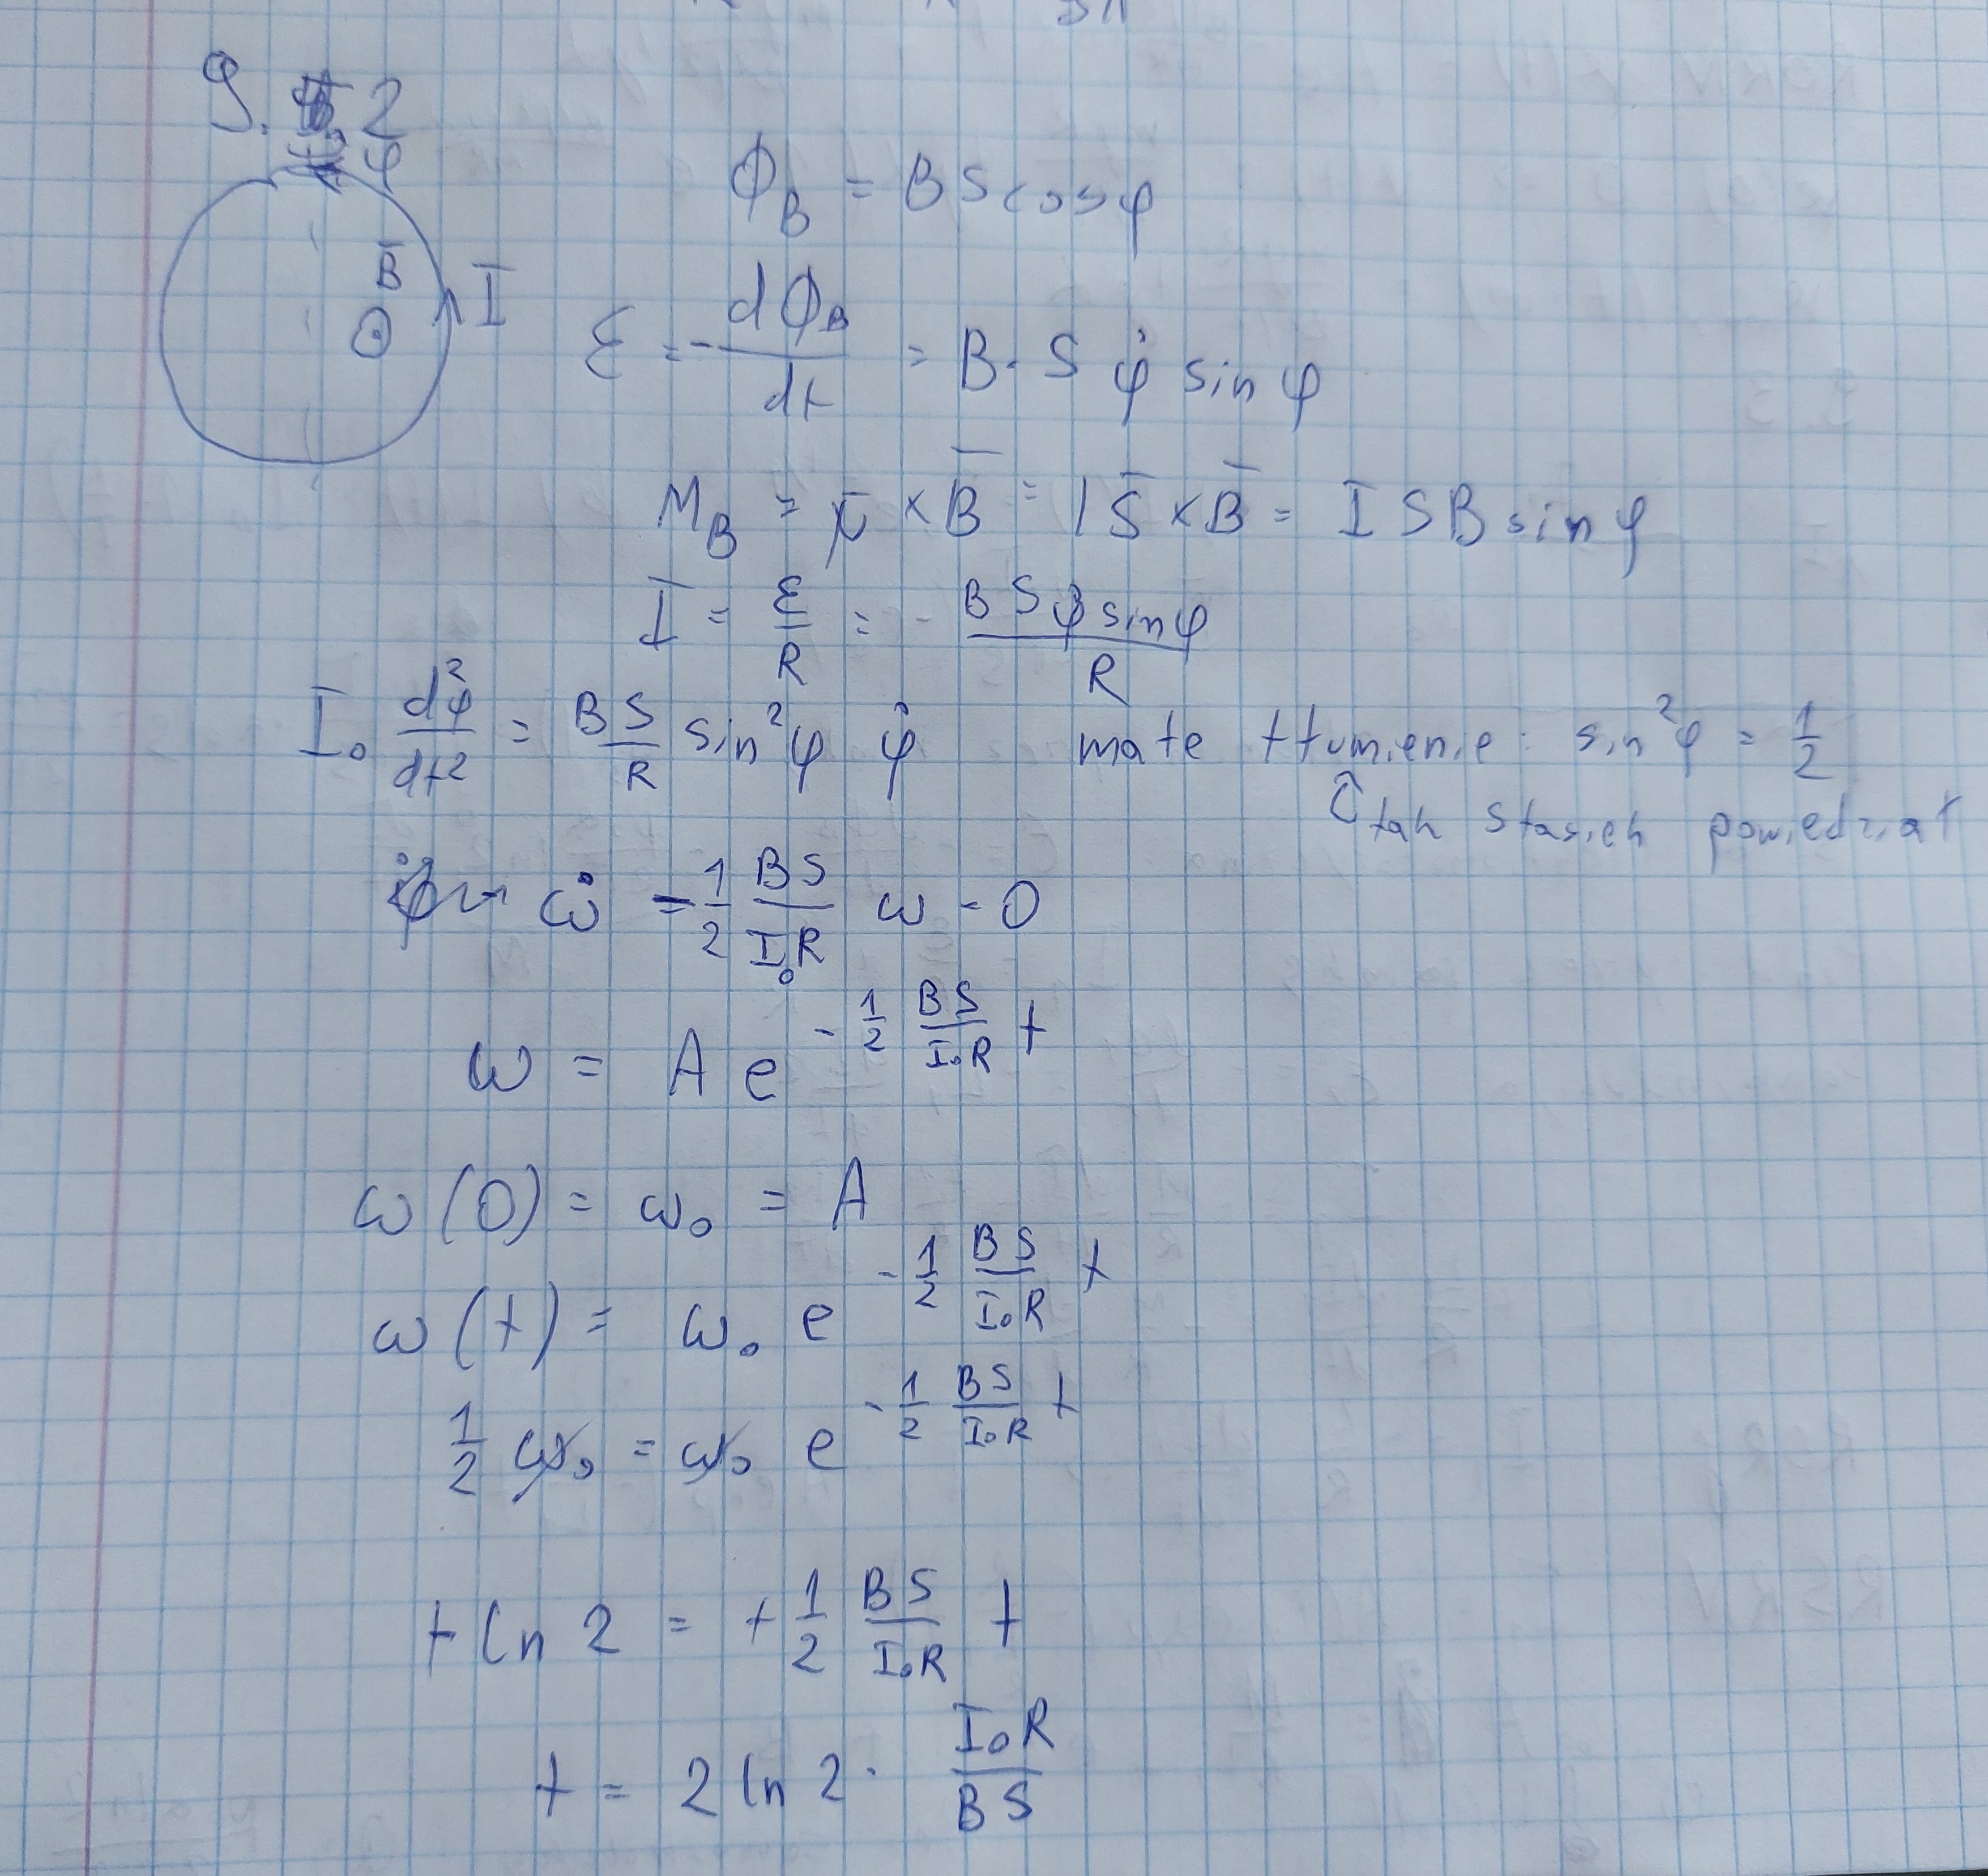 9. 2
φ
Φ_B = B S cos φ
B̄
I
ε = - dΦ_B / dt = B · S φ̇ sin φ
M_B = μ̄ × B̄ = I S̄ × B̄ = I S B sin φ
I = ε / R = - B S φ̇ sin φ / R
I₀ d²φ / dt² = B S / R sin² φ φ̇ małe tłumienie: sin² φ = 1/2
tak Stasiek powiedział
ω̇ = 1/2 B S / I₀ R ω = 0
ω = A e^(- 1/2 B S / I₀ R t)
ω (0) = ω₀ = A
ω (t) = ω₀ e^(- 1/2 B S / I₀ R t)
1/2 ω₀ = ω₀ e^(- 1/2 B S / I₀ R t)
+ ln 2 = + 1/2 B S / I₀ R t
t = 2 ln 2 · I₀ R / B S